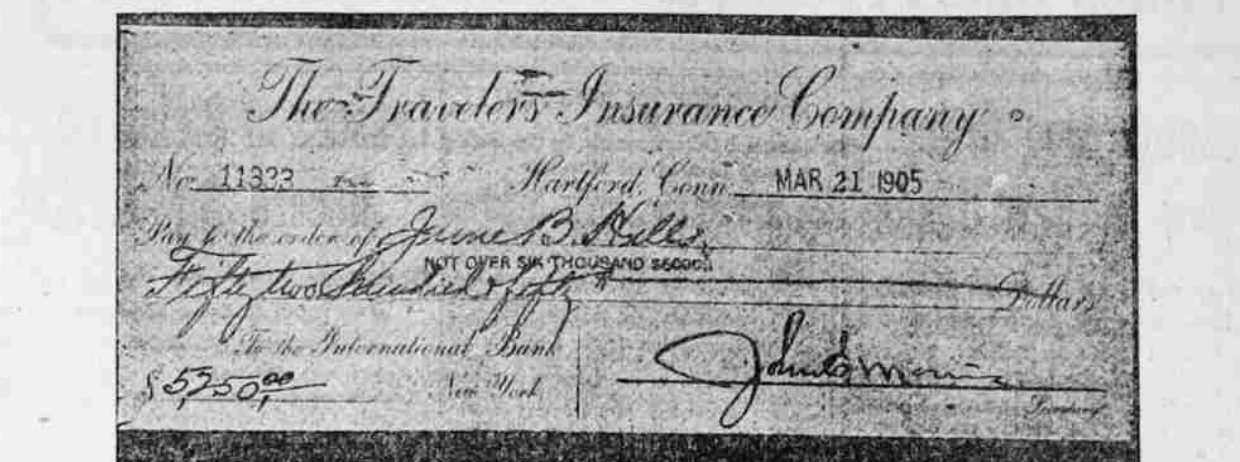 The Travelers Insurance Company
No. 11333 Hartford, Conn. MAR 21 1905
Pay to the order of June B. Hills,
NOT OVER SIX THOUSAND $6000$
Fifty two hundred & fifty Dollars
To the International Bank
$ 5,250,00 New York
Secretary